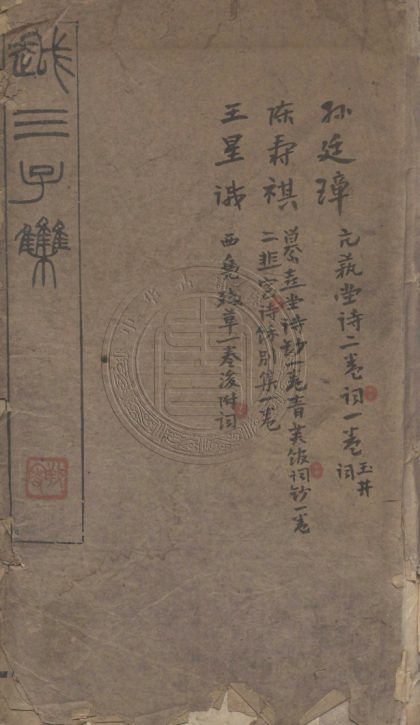 孙廷璋
亢蓺堂诗二卷词一卷玉井词
陈寿祺
纂喜堂诗钞一卷青芙馆词钞一卷
二韭室诗馀别集一卷
王星
西凫残草一卷后附词
越三子集